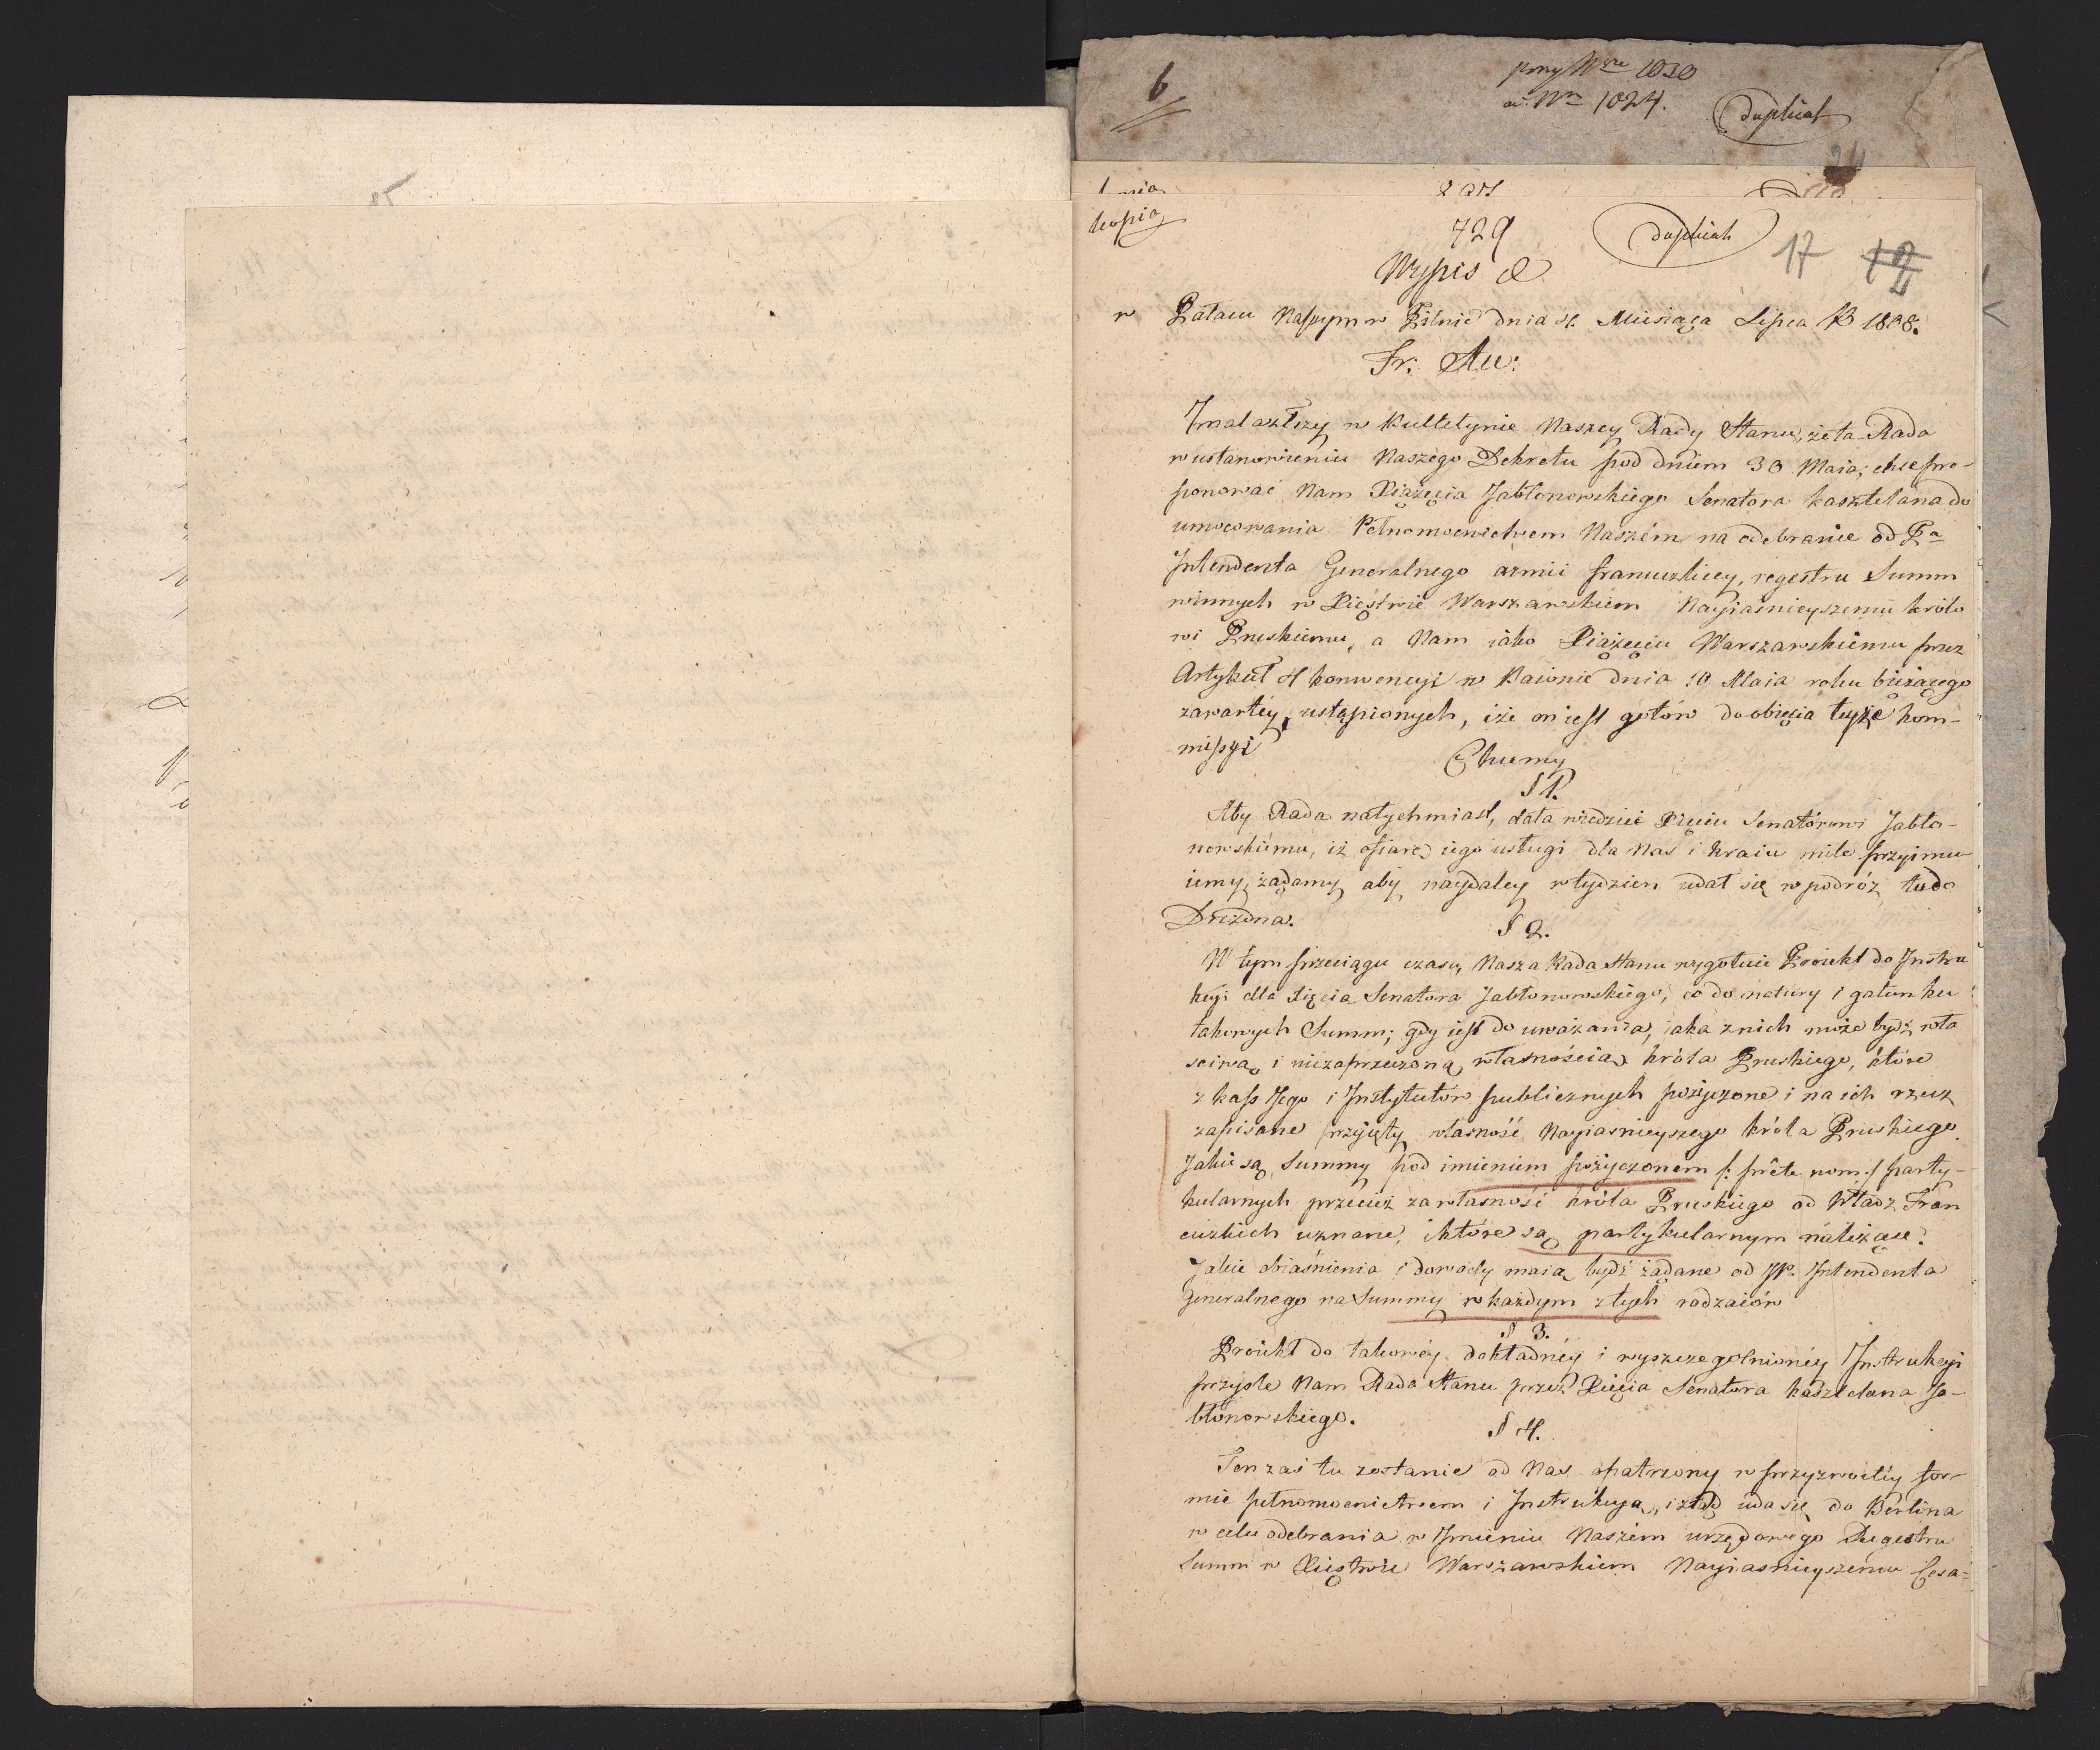 6
przy Nrze 1030
a Nro 1024.
duplicat
kopia
729
duplicat
17
Wypis
w Pałacu Naszym w Pilnic dnia 4. Miesiąca Lipca R 1808.
Fr: Au:
Znalazłszy w Bulletynie Naszey Rady Stanu, że ta Rada
w ustanowieniu Naszego Dekretu pod dniem 30 Maia, chce pro-
ponować Nam Xiążęcia Jabłonowskiego Senatora kasztelana do
umocowania Pełnomocnictwem Naszém na odebranie od Pa
Intendenta Generalnego armii francuzkiey, regestru Summ
winnych w Xięstwie Warszawskiem Nayiaśnieyszemu królo
wi Pruskiemu, a Nam iako Xiążęciu Warszawskiemu przez
Artykuł 4 konwencyi w Baionie dnia 10 Maia roku bieżącego
zawartéy, ustąpionych, iże on iest gotów do obięcia teyże kom-
missyi
Chcemy
§ 1.
Aby Rada natychmiast, dała wiedzieć Xięciu Senatorowi Jabło-
nowskiemu, iż ofiarę iego usługi dla Nas i kraiu mile przyimu-
iemy, żądamy aby naydaley w tydzien udał się w podróż tu do
Drezdna.
§ 2.
W tym przeciągu czasu, Nasza Rada Stanu wygotuie Proiekt do Instru
kcyi dla Xięcia Senatora Jabłonowskiego, co do natury i gatunku
takowych Summ; gdy iest do uważania, iaka z nich może bydź wła
sciwą i niezaprzeczoną własnością króla Pruskiego, które
z kass Jego i Instytutów publicznych pożyczone i na ich rzecz
zapisane przyięły własność Nayiasnieyszego króla Pruskiego.
Jakie są Summy pod imieniem pożyczonem /: prête nom :/ party-
kularnych przecież za własność króla Pruskiego od Władz Fran
cuzkich uznane, i które są partykularnym należące.
Jakie obiaśnienia i dowody maią bydź żądane od JP. Intendenta
Generalnego na Summy w każdym z tych rodzaiów
§ 3.
Proiekt do takowéy dokładnéy i wyszczegolnionéy Instrukcyi
przysle Nam Rada Stanu przez Xięcia Senatora kasztelana Ja-
błonowskiego.
§ 4.
Ten zaś tu zostanie od Nas opatrzony w przyzwoitéy for-
mie pełnomocnictwem i Instrukcyą, i ztąd uda się do Berlina
w celu odebrania w Imieniu Naszém urzędowego Regestru
Summ w Xięstwie Warszawskiem Nayiasnieyszemu Cesa=